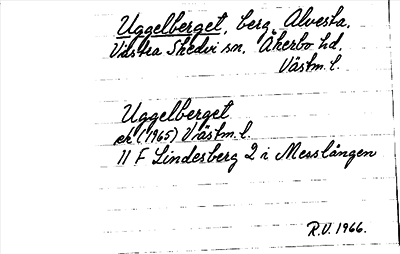 Uggelberget, berg, Alvesta,
Västra Skedvi sn, Åkerbo hd,
Västm. l.
Uggelberget
ek (1965) Västm. l.
11 F Lindesberg 2 i Messlången
R.V. 1966.